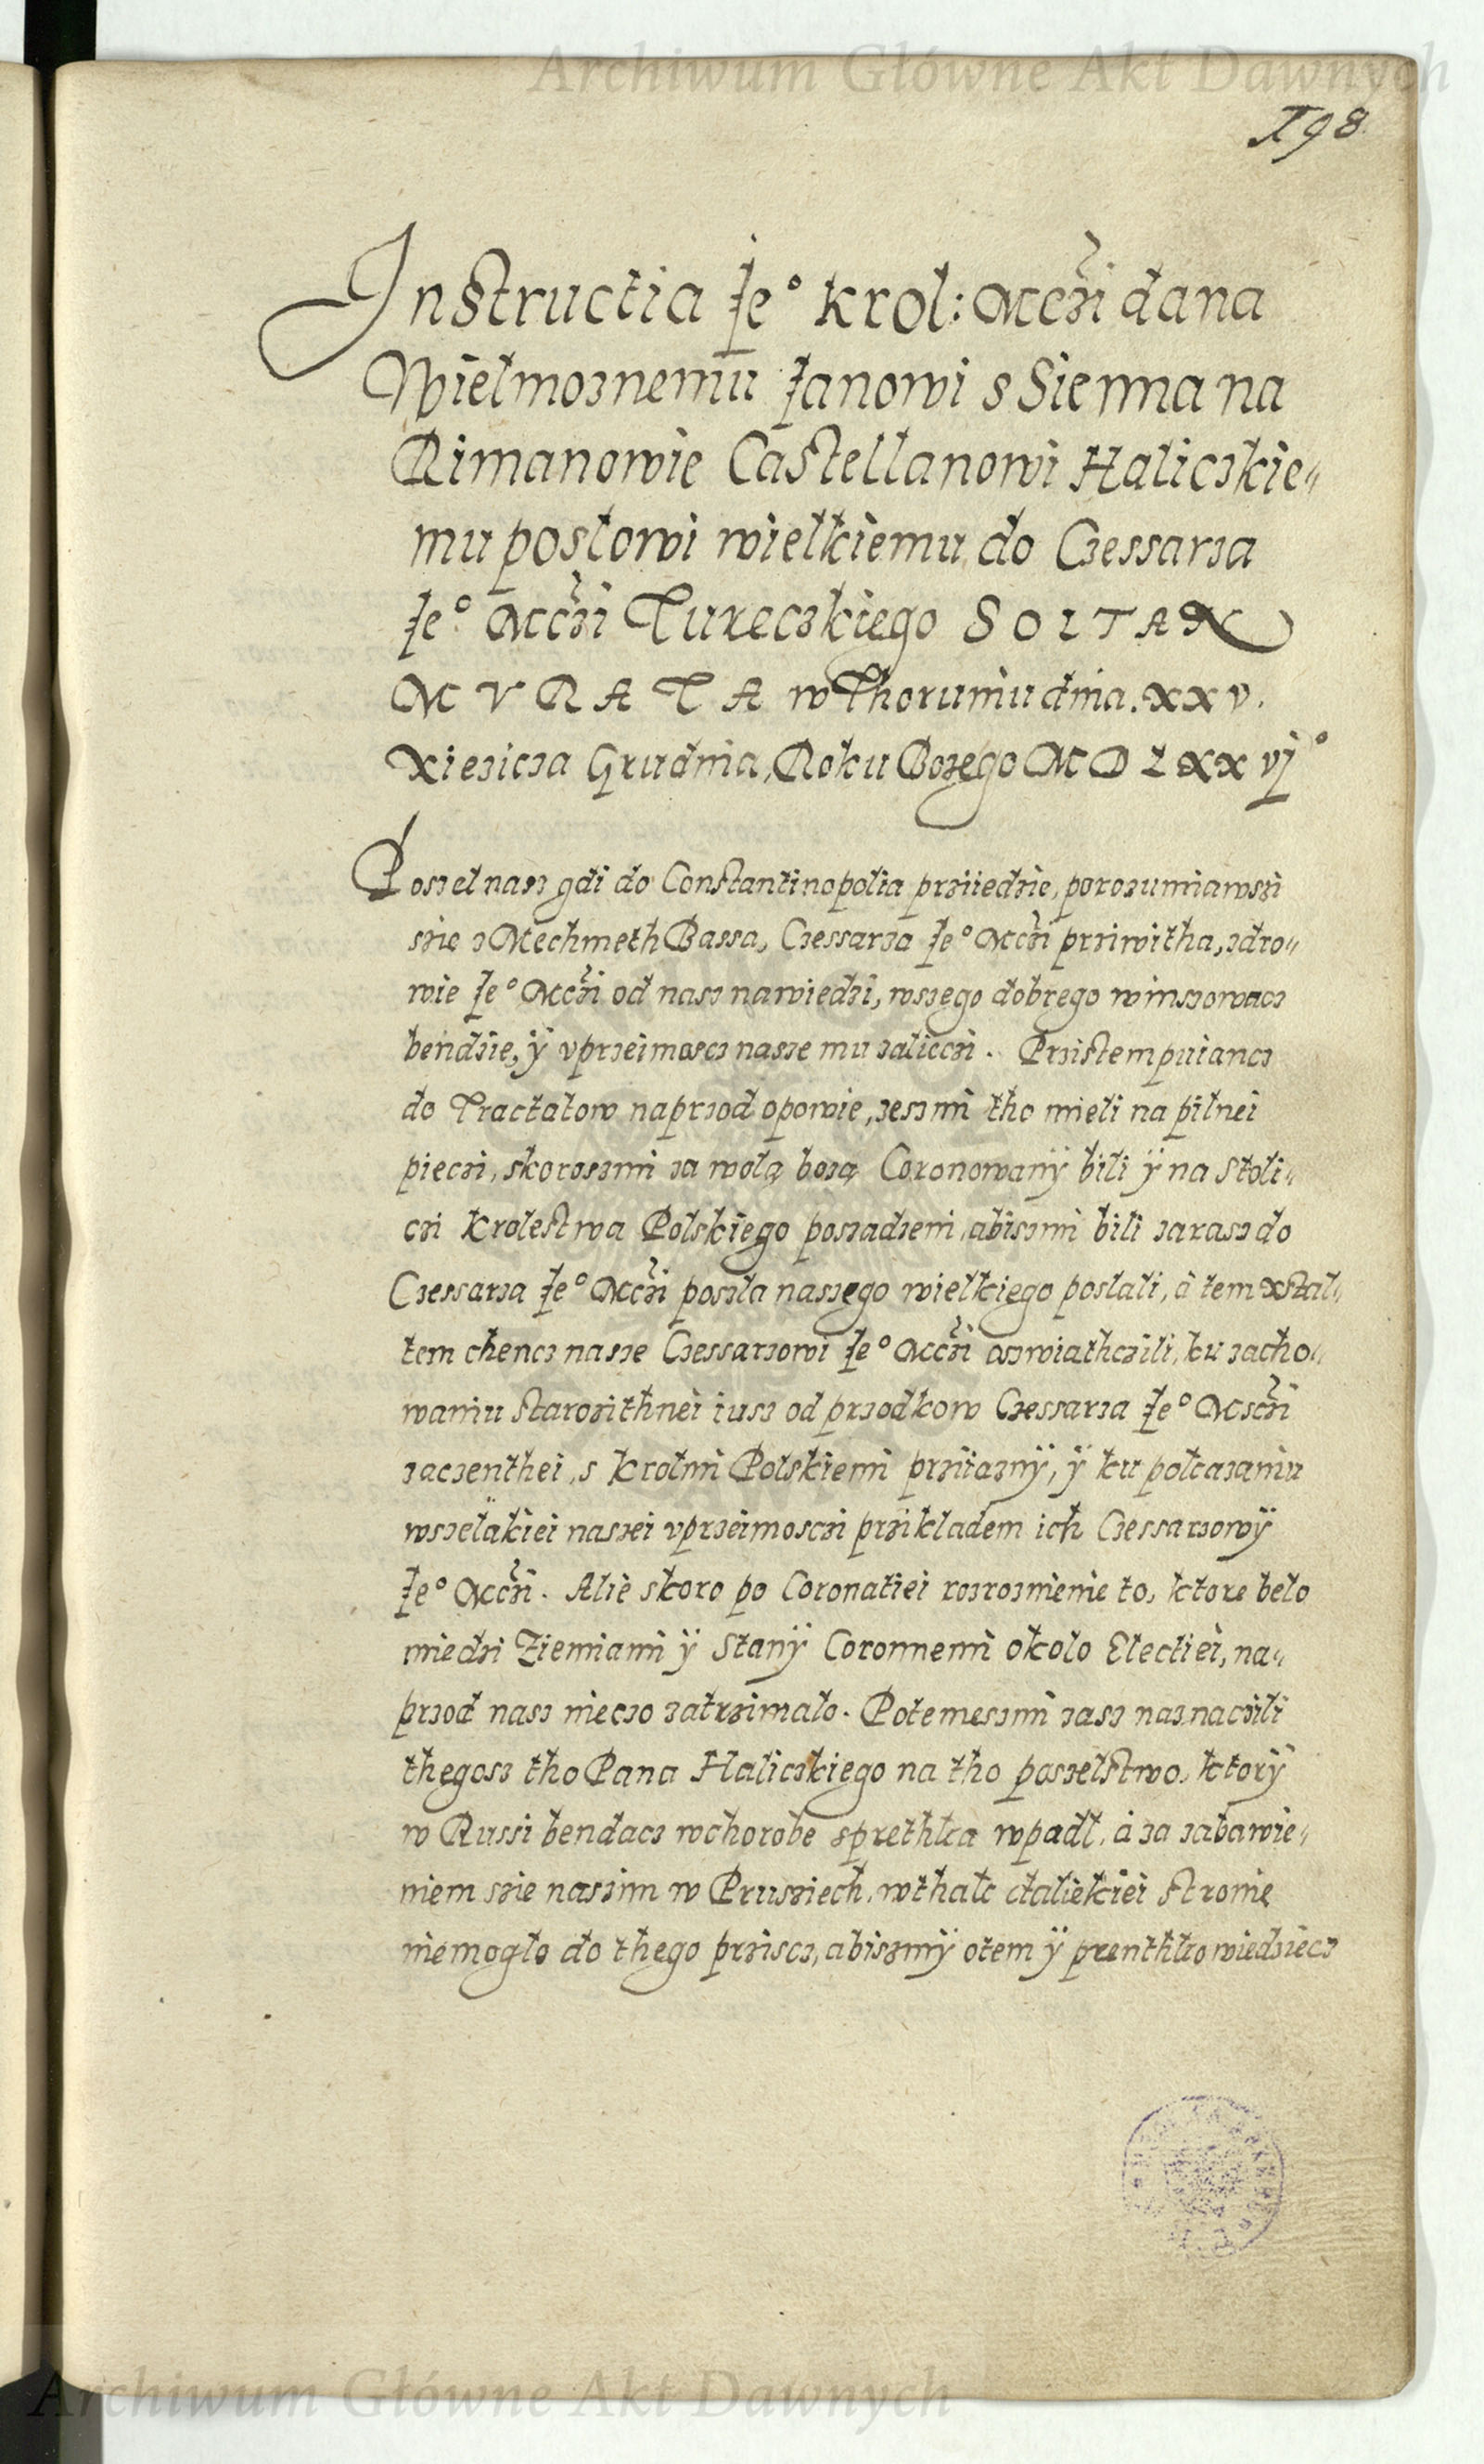 Archiwum Główne Akt Dawnych
198
Instructia Je° Krol: Mczi dana
Wielmoznemu Janowi s Sienna na
Rimanowie Castellanowi Haliczkie„
mu poslowi wielkiemu do Czessarza
Je° Mczi Tureczkiego SOLTAN
MURATA w Thoruniu dnia. xxv.
Xiezicza Grudnia, Roku Bozego MDLXXVJ°
Poszel nasz gdi do Constantinopolia prziiedzie, porozumiawszi
szie z Mechmeth Bassa, Czessarza Je° Mczi prziwitha, zdro„
wie Je° Mczi od nasz nawiedzi, wszego dobrego winszowacz
bendzie, ÿ vprzeimoscz nasze mu zalicczi. Przistempuiancz
do Tractatow naprzod opowie, zeszmi tho mieli na pilnei
pieczi, skoroszmi za wolą bozą Coronowanÿ bili ÿ na Stoli„
czi Krolestwa Polskiego poszadzeni, abiszmi bili zarasz do
Czessarza Je° Mczi poszla naszego wielkiego poslali, à tem xstal„
tem chencz nasze Czessarzowi Je° Mczi oszwiathczili, ku zacho„
waniu starozithnei iusz od przodkow Czessarza Je° Msczi
zaczenthei, s Krolmi Polskiemi prziiaznÿ, ÿ ku pokazaniu
wszelakiei naszei vprzeimosczi przikladem ich Czessarzowÿ
Je° Mczi. Alie skoro po Coronatiei rozroznienie to, ktore belo
miedzi Ziemiami ÿ Stanÿ Coronnemi okolo Electiei, na„
przod nasz nieczo zatrzimalo. Potemeszmi zasz naznaczili
thegosz tho Pana Haliczkiego na tho poszelstwo, ktorÿ
w Russi bendacz w chorobe sprethka wpadl, à za zabawie„
niem szie naszim w Prusziech, w thak daliekiei stronie
niemoglo do thego prziscz, abiszmÿ otem ÿ prenthko wiedziecz
Archiwum Główne Akt Dawnych